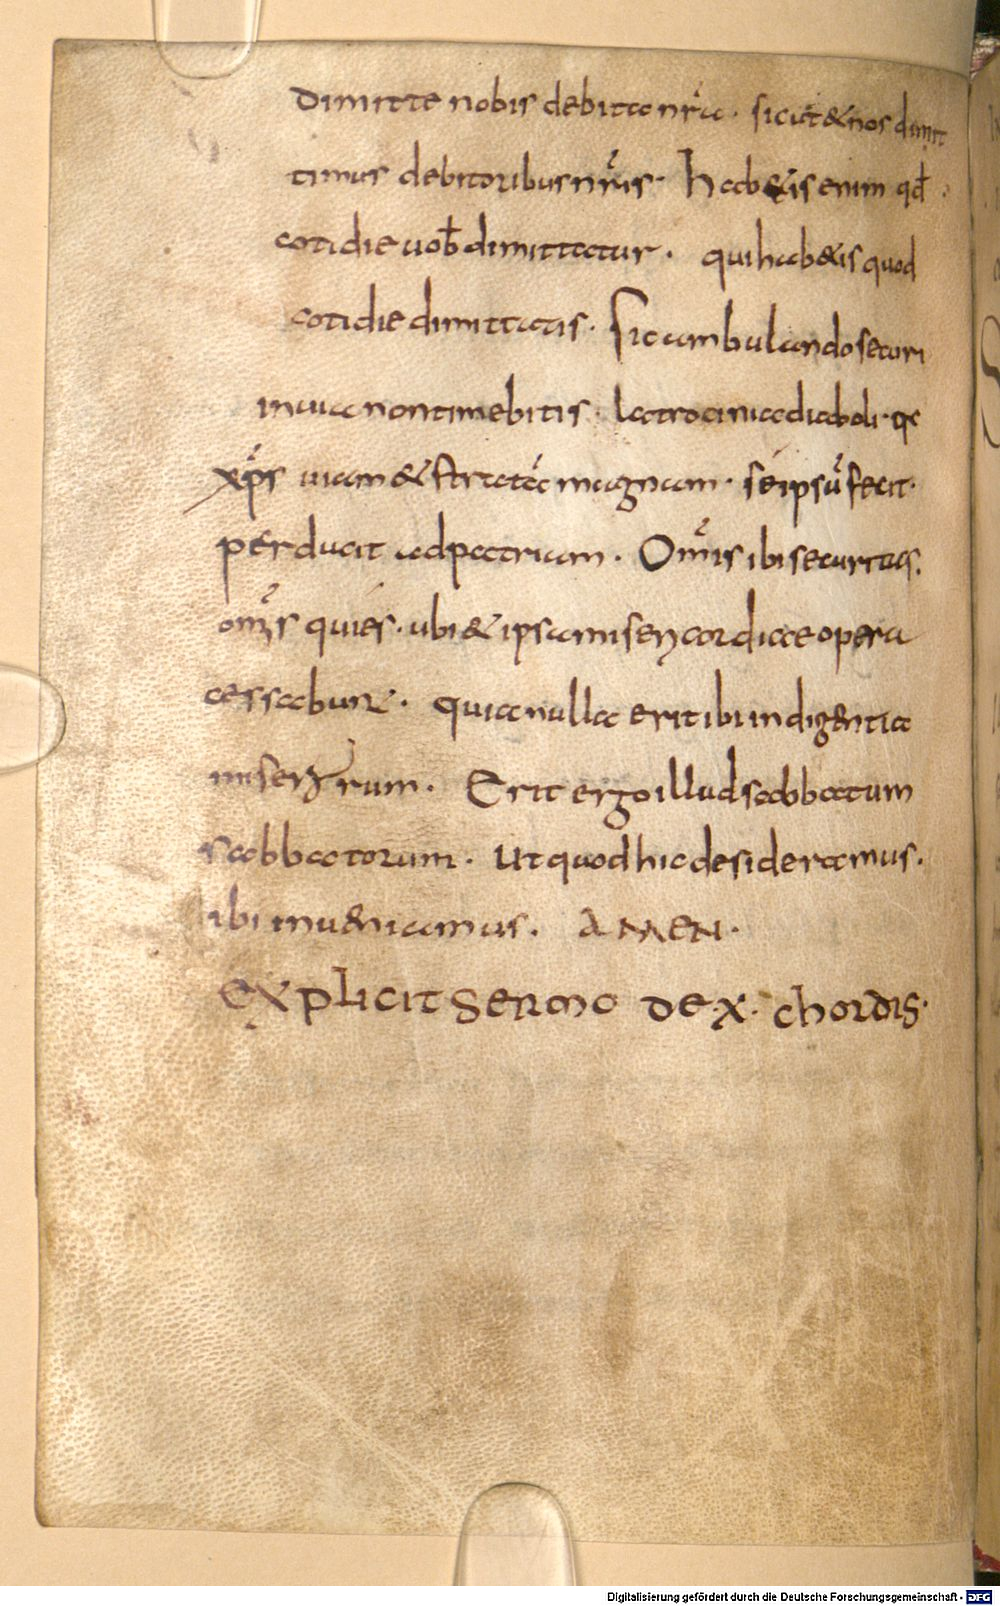 dimitte nobis debita nr̃a· sicut & nos dimit
timus debitoribus nr̃is· Hab&is enim qđ
cotidie uoƀ dimittatur· qui hab&is quod
cotidie dimittatis· Sic ambulando securi
in uia non timebitis· latrocinia diaboli· qa
xp̃s uiam & stratã magnam· se ipsũ fecit·
perducit ad patriam· Om̃is ibi securitas·
om̃s quies· ubi & ipsa misericordiae opera
cessabunt· quia nulla erit ibi indigentia
miserorum· Erit ergo illud sabbatum
sabbatorum· Ut quod hic desideramus·
ibi inueniamus· AMEN·
EXPLICIT SERMO DE·X· CHORDIS·
Digitalisierung gefördert durch die Deutsche Forschungsgemeinschaft - DFG